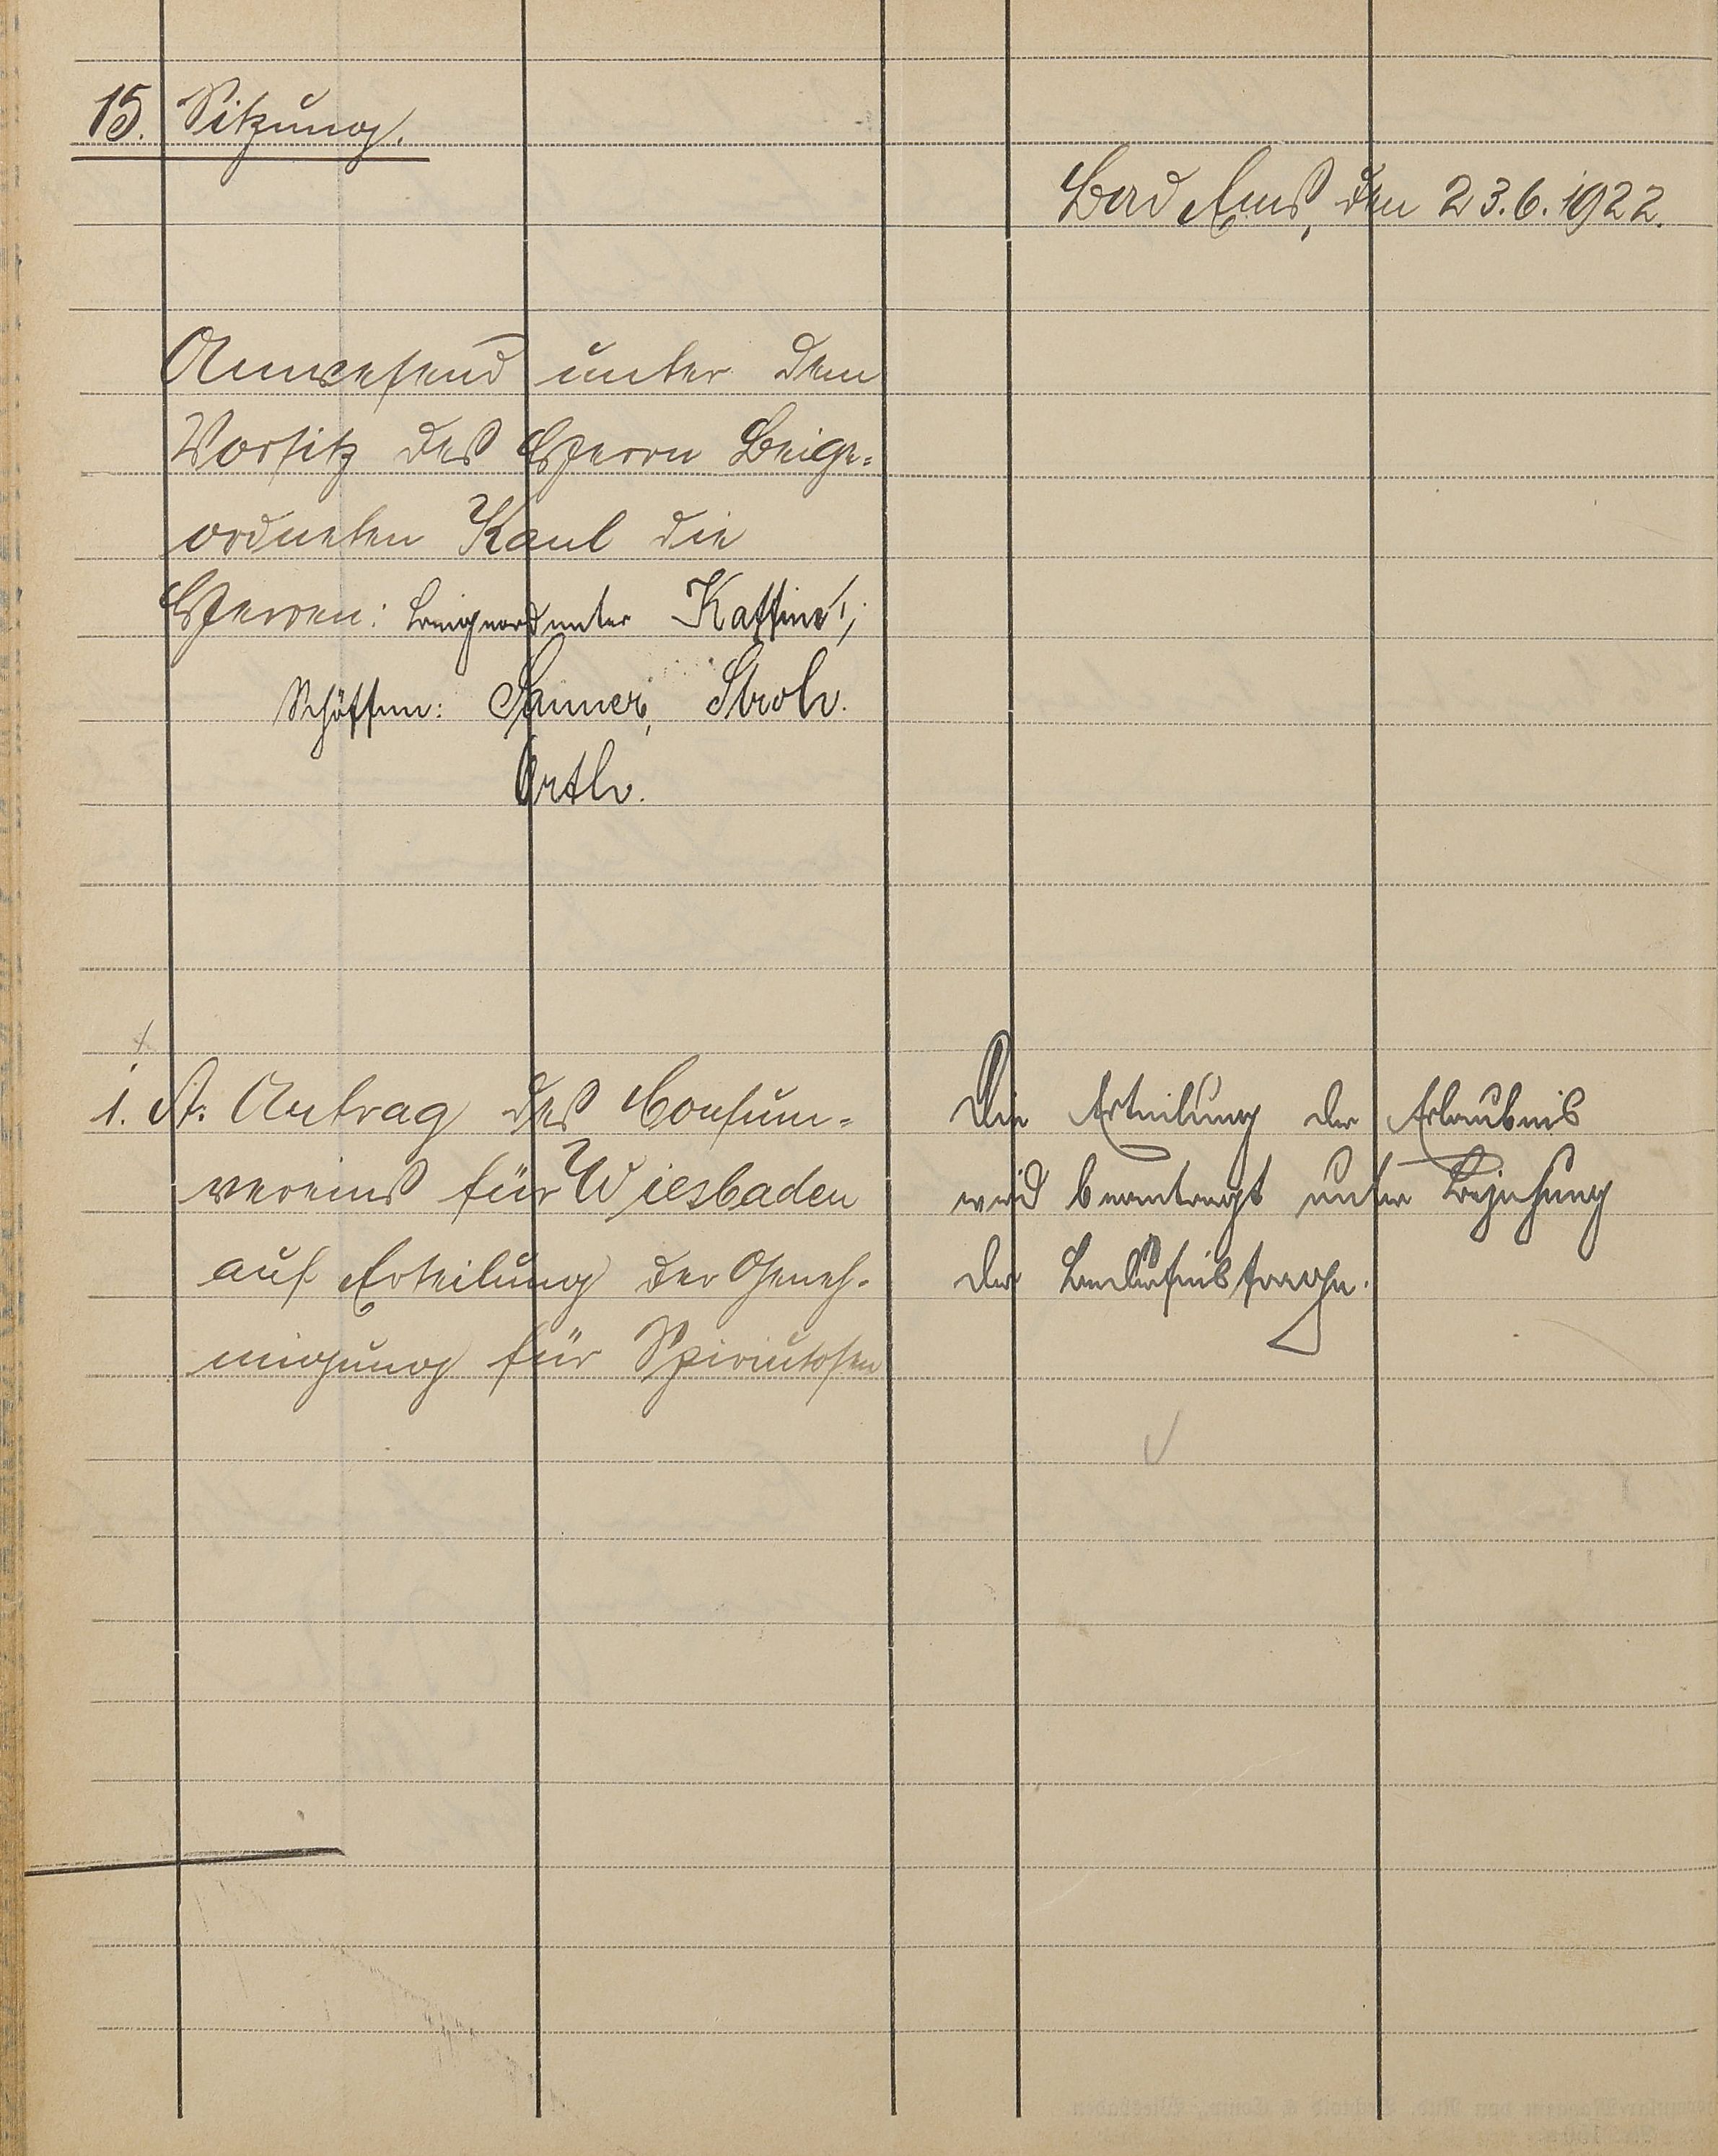 15. Sitzung.
Bad Ems, den 23.6.1922.
Anwesend unter dem
Vorsitz des Herrn Beige-
ordneten Kaul die
Herren: Beigeordneter Kaffine,
Schöffen: Sanner, Stroh.
Orth.
1. A. Antrag des Consum-
vereins für Wiesbaden
auf Erteilung der Geneh-
migung für Spirituosen
Die Erteilung der Erlaubnis
wird beantragt unter Bejahung
der Bedürfnisfrage.